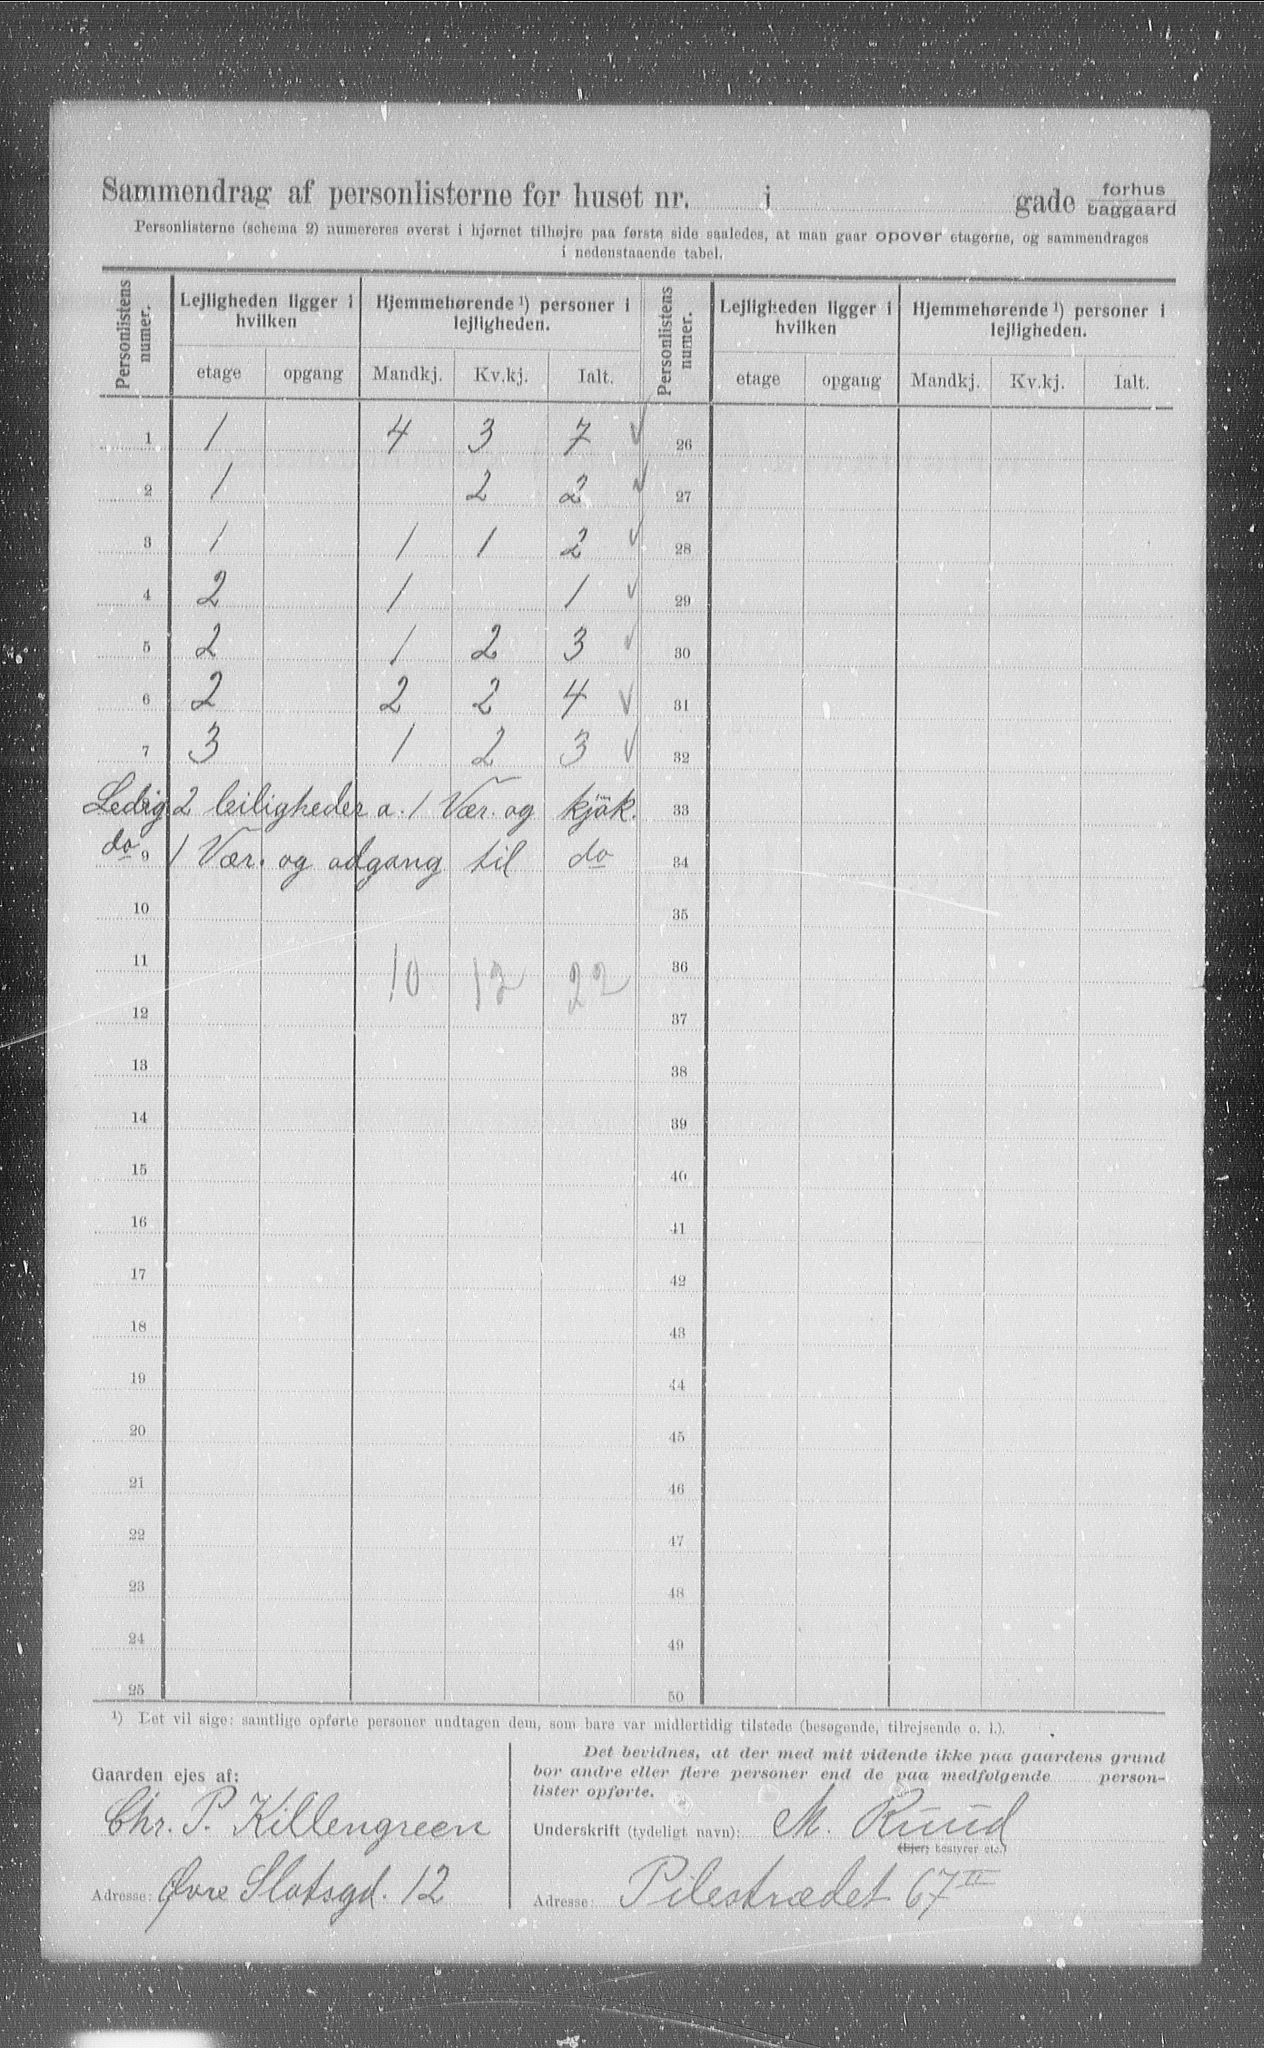 Sammendrag af personlisterne for huset nr. i gade forhus baggaard
Personlisterne (schema 2) numereres øverst i hjørnet tilhøjre paa første side saaledes, at man gaar opover etagerne, og sammendrages
i nedenstaaende tabel.
Personlistens numer. Lejligheden ligger i hvilken Hjemmehørende ¹) personer i lejligheden. Personlistens numer. Lejligheden ligger i hvilken Hjemmehørende ¹) personer i lejligheden.
etage opgang Mandkj. Kv.kj. Ialt. etage opgang Mandkj. Kv.kj. Ialt.
1 1 4 3 7 ✓ 26
2 1 2 2 ✓ 27
3 1 1 1 2 ✓ 28
4 2 1 1 ✓ 29
5 2 1 2 3 ✓ 30
6 2 2 2 4 ✓ 31
7 3 1 2 3 ✓ 32
Ledig 2 leiligheder a. 1 Vær. og kjök. 33
do 9 1 Vær. og adgang til do 34
10 35
11 10 12 22 36
12 37
13 38
14 39
15 40
16 41
17 42
18 43
19 44
20 45
21 46
22 47
23 48
24 49
25 50
¹) Det vil sige: samtlige opførte personer undtagen dem, som bare var midlertidig tilstede (besøgende, tilrejsende o. l.).
Gaarden ejes af:
Chr. P. Killengreen
Adresse: Øvre Slotsgd. 12
Det bevidnes, at der med mit vidende ikke paa gaardens grund
bor andre eller flere personer end de paa medfølgende person-
lister opførte.
Underskrift (tydeligt navn): M. Ruud
(Ejer, bestyrer etc.)
Adresse: Pilestrædet 67 II